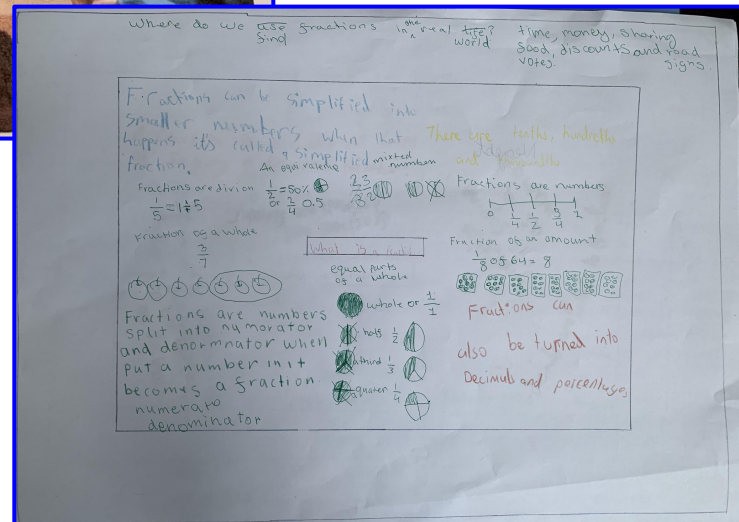 Where do we use fractions in the real life?
find world
time, money, sharing
food, discounts and road
votes. signs.
Fractions can be simplified into
smaller numbers when that
happens it's called a simplified
fraction.
There are tenths,
and
An equivalent
mixed
number
Fractions are divion
1/5 = 1÷5
1/2 = 50%
or 2/4 0.5
Fractions are numbers
0 1/4 1/2 3/4 1
Fraction of a whole
3/7
What is a
equal parts
of a whole
whole or 1/1
half 1/2
a third 1/3
a quater 1/4
Fraction of an amount
1/8 of 64 = 8
Fractions are numbers
split into numorator
and denormnator when
put a number in it
becomes a fraction
numerato
denominator
Fractions can
also be turned into
Decimals and percentages